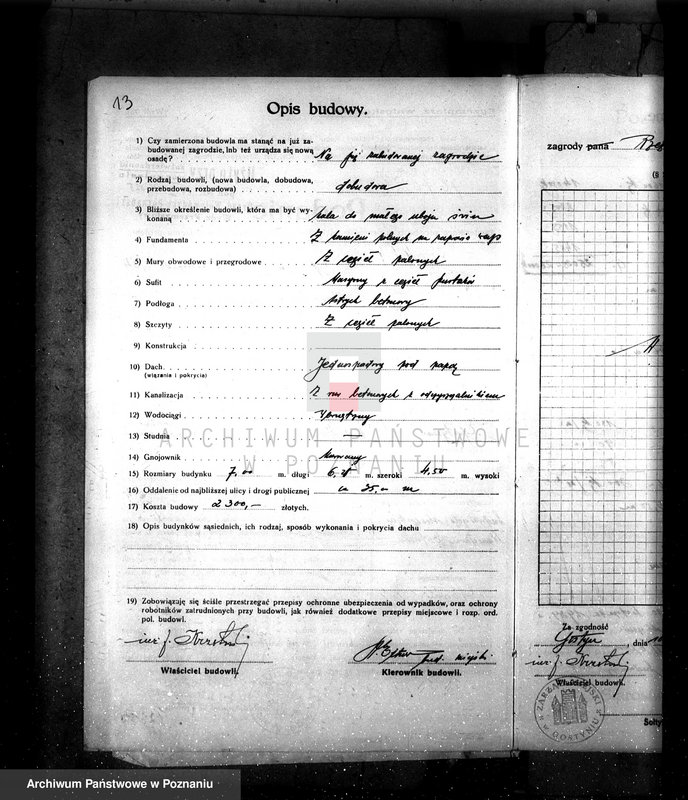 13
Opis budowy.
1) Czy zamierzona budowla ma stanąć na już za-
budowanej zagrodzie, lub też urządza się nową
osadę? Na już zabudowanej zagrodzie
2) Rodzaj budowli, (nowa budowla, dobudowa,
przebudowa, rozbudowa) dobudowa
3) Bliższe określenie budowli, która ma być wy-
konaną hala do małego uboju świn
4) Fundamenta Z kamieni polnych na zaprawie
5) Mury obwodowe i przegrodowe Z cegieł palonych
6) Sufit Masywny z cegieł pustaków
7) Podłoga betonowy
8) Szczyty Z cegieł palonych
9) Konstrukcja
10) Dach Jednospadowy pod papą
(wiązania i pokrycia)
11) Kanalizacja Z rur betonowych z
12) Wodociągi
13) Studnia —
14) Gnojownik
15) Rozmiary budynku 7,00 m. długi m. szeroki 4,50 m. wysoki
16) Oddalenie od najbliższej ulicy i drogi publicznej m
17) Koszta budowy 2300,— złotych.
18) Opis budynków sąsiednich, ich rodzaj, sposób wykonania i pokrycia dachu
19) Zobowiązuję się ściśle przestrzegać przepisy ochronne ubezpieczenia od wypadków, oraz ochrony
robotników zatrudnionych przy budowli, jak również dodatkowe przepisy miejscowe i rozp. ord.
pol. budowl.
Właściciel budowli.
bud. miejski
Kierownik budowli.
zagrody pana
Za zgodność
Gostyń, dnia
Właściciel budowli.
ZARZĄD MIEJSKI
W GOSTYNIU
Sołty
ARCHIWUM PAŃSTWOWE
W POZNANIU
Archiwum Państwowe w Poznaniu